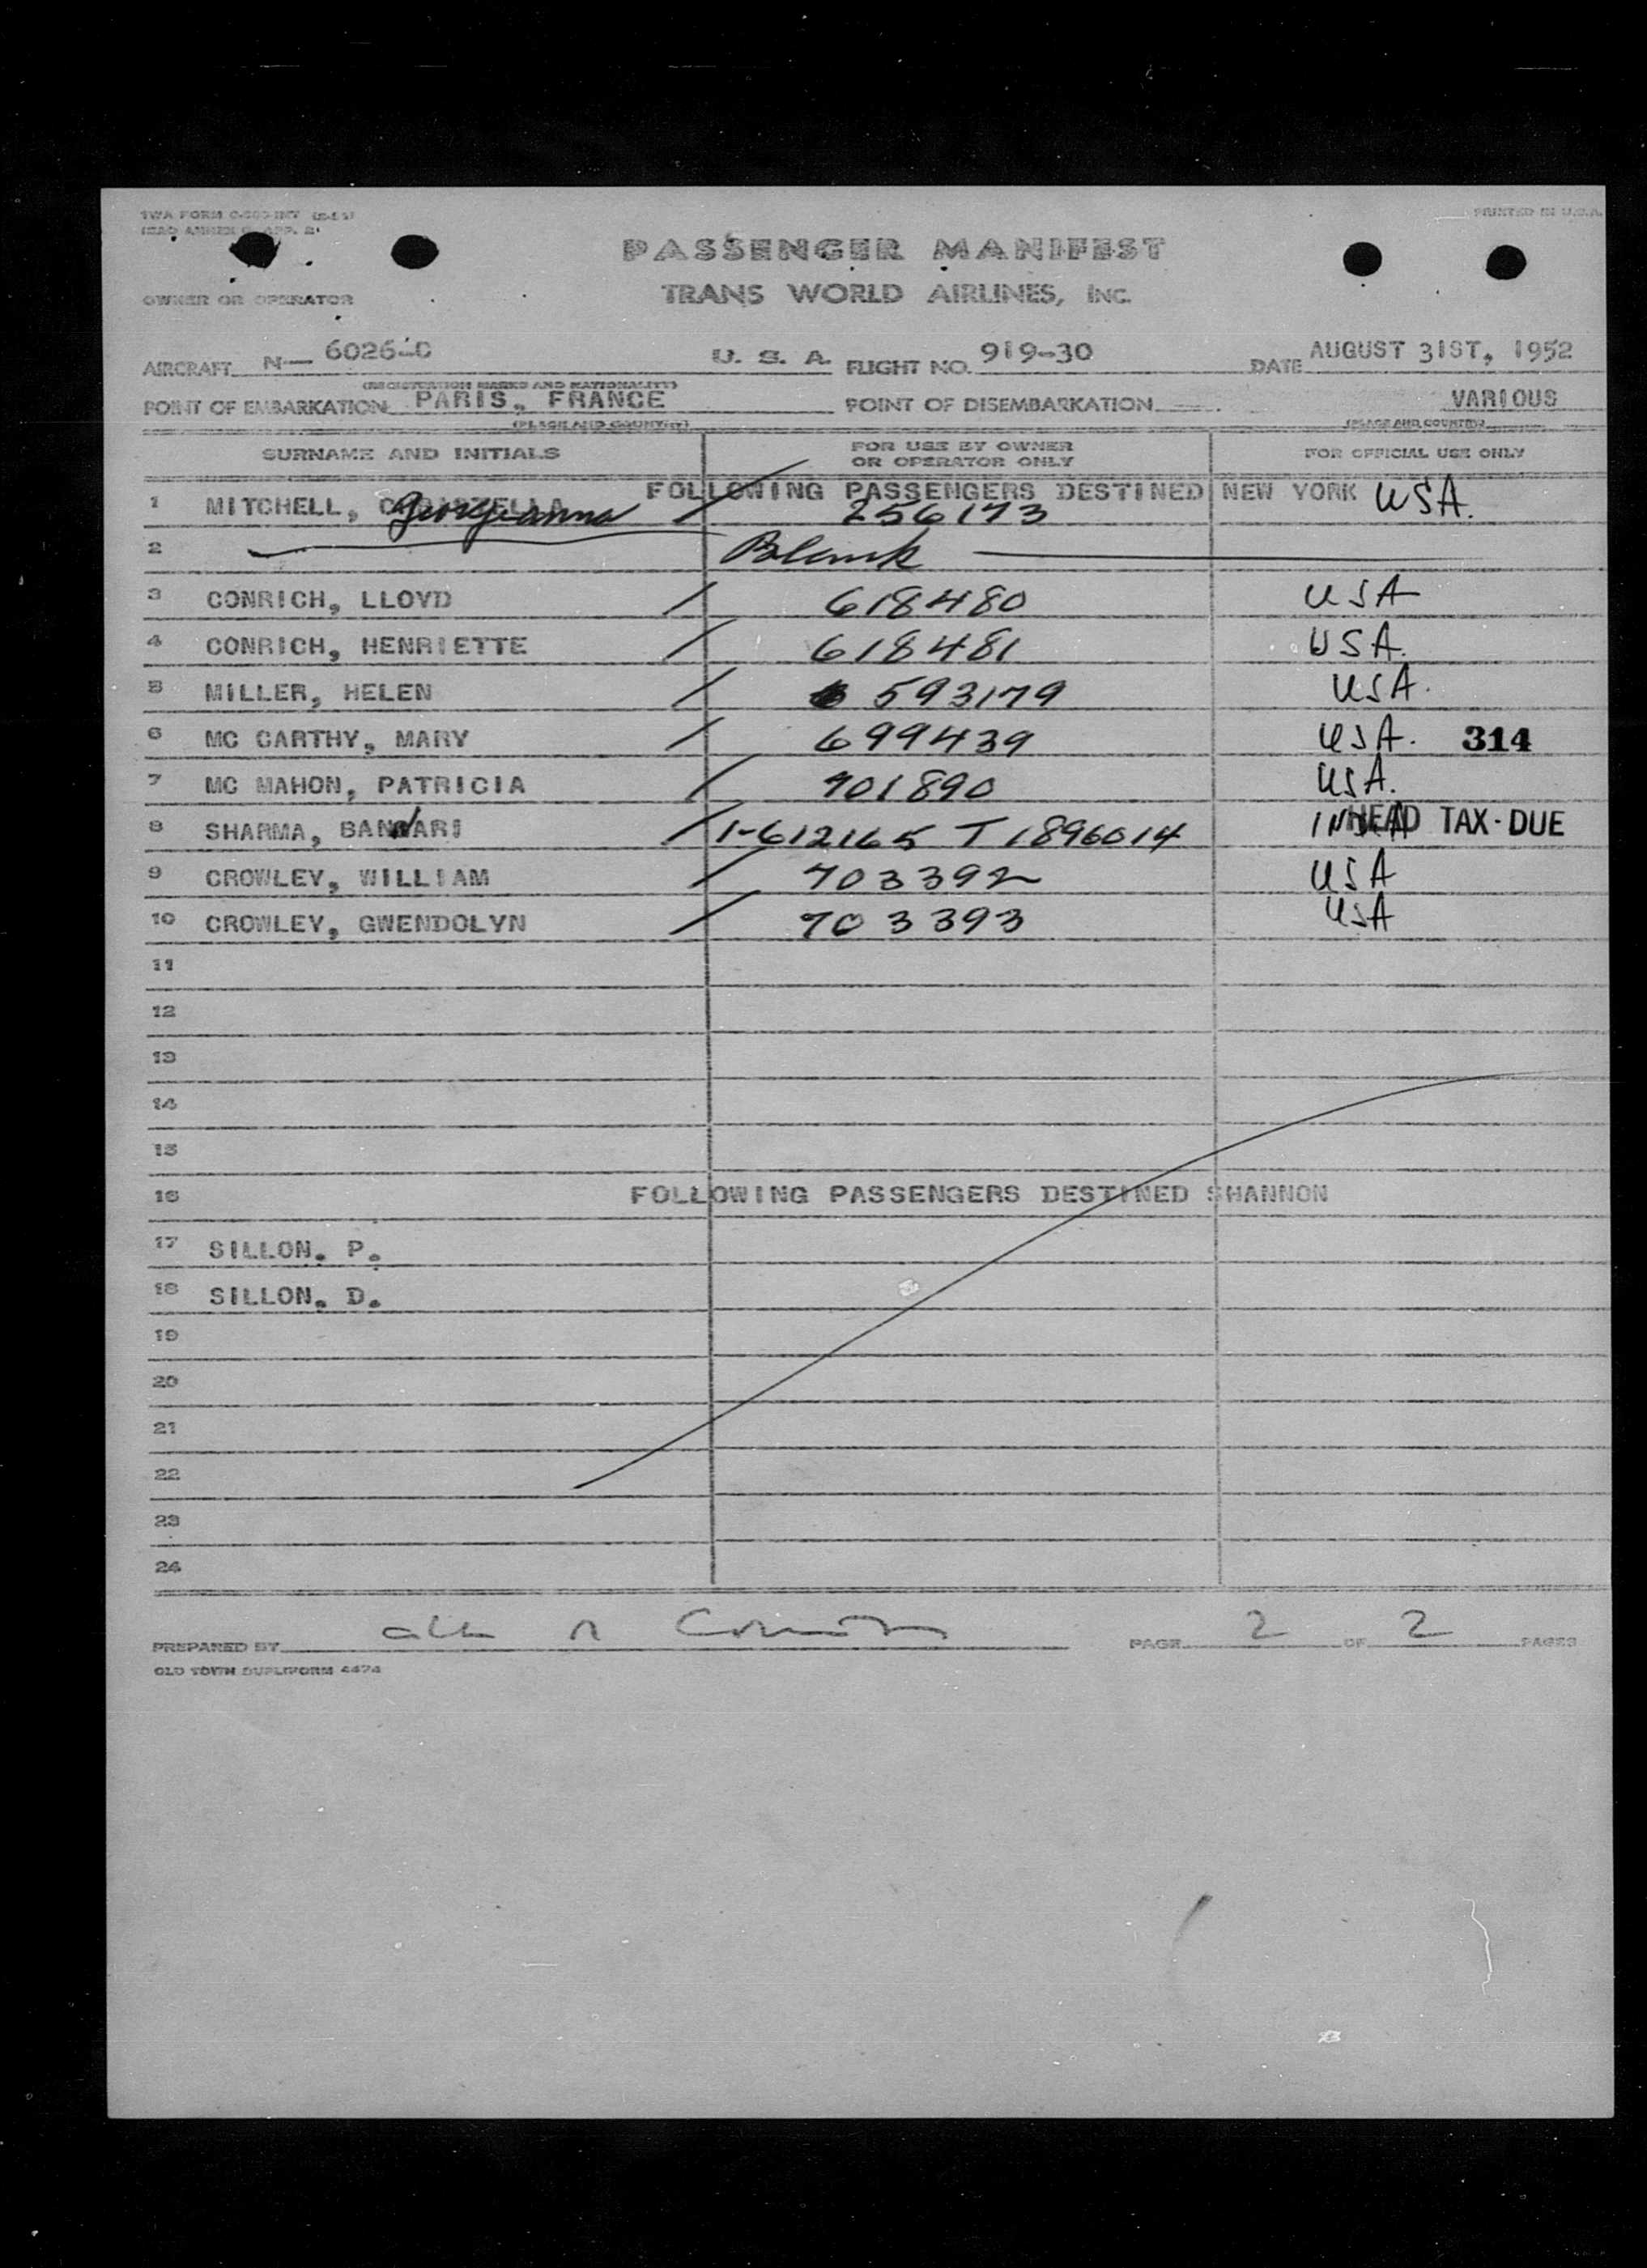 TWA FORM
PRINTED IN U.S.A.
PASSENGER MANIFEST
TRANS WORLD AIRLINES, INC.
OWNER OR OPERATOR
AIRCRAFT N— 6026-C U. S. A. FLIGHT NO. 919-30 DATE AUGUST 31ST, 1952
(REGISTRATION MARKS AND NATIONALITY)
POINT OF EMBARKATION PARIS, FRANCE POINT OF DISEMBARKATION VARIOUS
(PLACE AND COUNTRY) (PLACE AND COUNTRY)
SURNAME AND INITIALS FOR USE BY OWNER OR OPERATOR ONLY FOR OFFICIAL USE ONLY
FOLLOWING PASSENGERS DESTINED NEW YORK
1 MITCHELL, Georgeanna / 256173 USA.
2 Blank
3 CONRICH, LLOYD / 618480 USA
4 CONRICH, HENRIETTE / 618481 USA.
5 MILLER, HELEN / 593179 USA.
6 MC CARTHY, MARY / 699439 USA. 314
7 MC MAHON, PATRICIA / 701890 USA.
8 SHARMA, / 1-612165 T 1896014 INDIA HEAD TAX-DUE
9 CROWLEY, WILLIAM / 703392 USA
10 CROWLEY, GWENDOLYN / 703393 USA
11
12
13
14
15
16 FOLLOWING PASSENGERS DESTINED SHANNON
17 SILLON. P.
18 SILLON. D.
19
20
21
22
23
24
PREPARED BY PAGE 2 OF 2 PAGES
OLD TOWN DUPLIFORM 4474